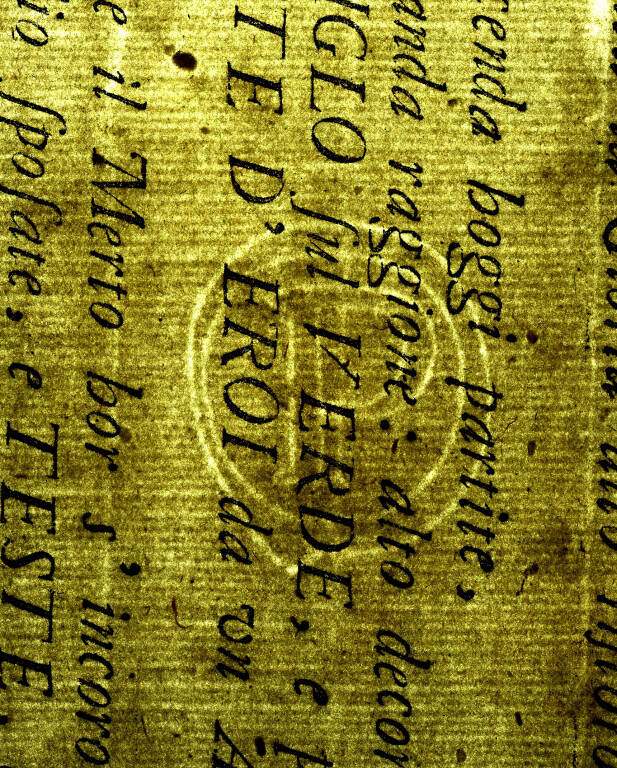 cenda hoggi partite,
anda raggione: alto decor
NGLO ſul VERDE, e
TE D'EROI da vn A
e il Merto hor s'incoro
io ſpoſate, e TESTE,